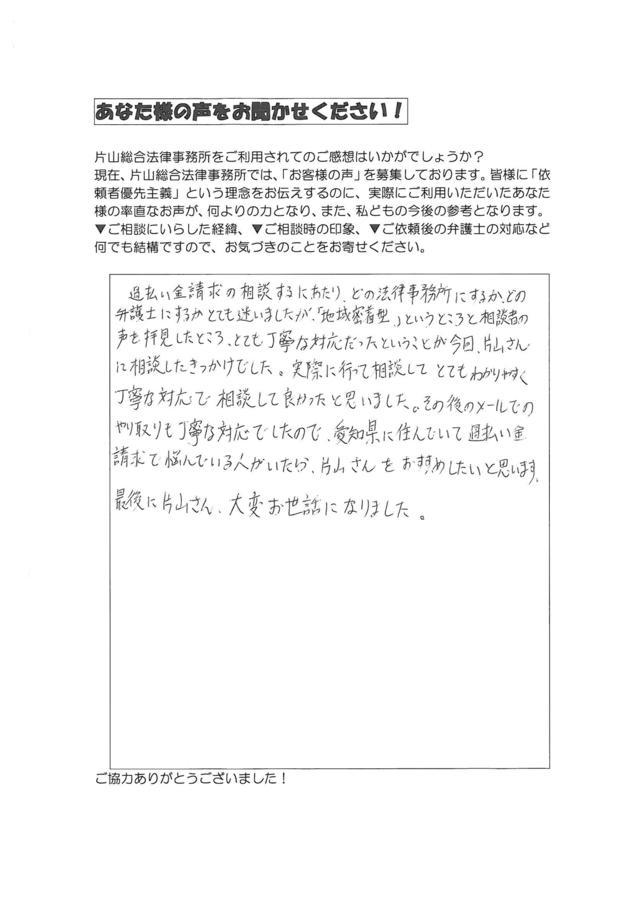 あなた様の声をお聞かせください！
片山総合法律事務所をご利用されてのご感想はいかがでしょうか？
現在、片山総合法律事務所では、「お客様の声」を募集しております。皆様に「依
頼者優先主義」という理念をお伝えするのに、実際にご利用いただいたあなた
様の率直なお声が、何よりの力となり、また、私どもの今後の参考となります。
▼ご相談にいらした経緯、▼ご相談時の印象、▼ご依頼後の弁護士の対応など
何でも結構ですので、お気づきのことをお寄せください。
過払い金請求の相談するにあたり、どの法律事務所にするか、どの
弁護士にするかとても迷いましたが、「地域密着型」というところと相談者の
声を拝見したところ、とても丁寧な対応だったということが今回、片山さん
に相談したきっかけでした。実際に行って相談してとてもわかりやすく
丁寧な対応で相談して良かったと思いました。その後のメールでの
やり取りも丁寧な対応でしたので、愛知県に住んでいて過払い金
請求で悩んでいる人がいたら、片山さんをおすすめしたいと思います。
最後に片山さん、大変お世話になりました。
ご協力ありがとうございました！